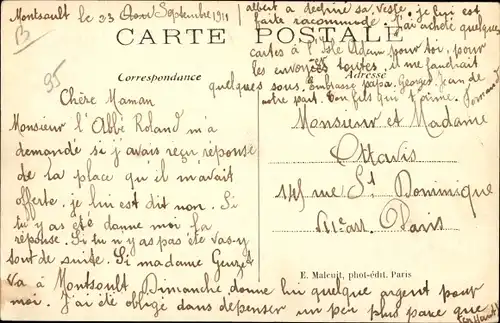 Montsault le 23 Septembre 1911
B
95
CARTE POSTALE
Correspondance
Adresse
Chère Maman
Monsieur l'Abbé Roland m'a
demandé si j'avais reçu réponse
de la place qu'il m'avait
offerte. je lui est dit non. Si
tu y as été donne moi la
réponse. Si tu n'y as pas été vas-y
tout de suite. Si madame
va à Montsoult Dimanche donne lui quelque argent pour
moi. J'ai été obligé dans dépenser un peu plus parce que
(en haut)
albert a déchiré sa veste, je lui est
faite raccomodé. J'ai acheté quelques
cartes à l'Isle Adam pour toi, pour
les envoyées toutes il me faudrait
quelques sous. Embrasse papa, Georges, Jean de
notre part. Ton fils qui t'aime.
Monsieur et Madame
Ottavis
145 rue St Dominique
VIIe arr. Paris
E. Malcuit, phot-édit. Paris